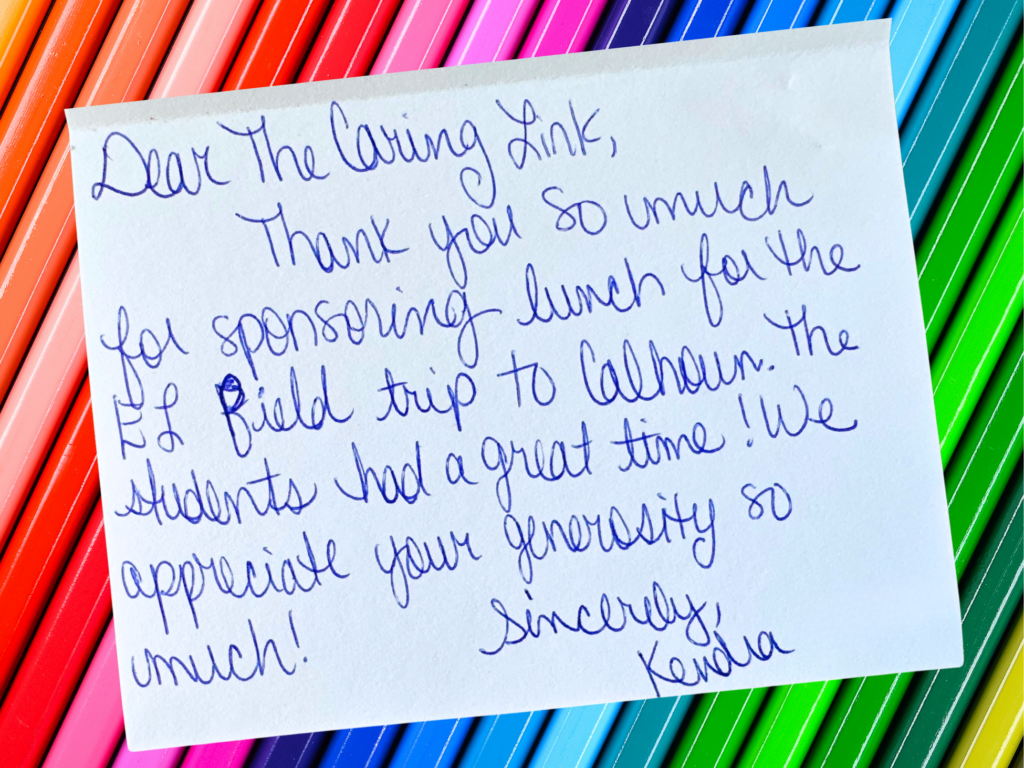 Dear The Caring Link,
Thank you so much
for sponsoring lunch for the
EL field trip to Calhoun. The
students had a great time! We
appreciate your generosity so
much!
Sincerely,
Kendra